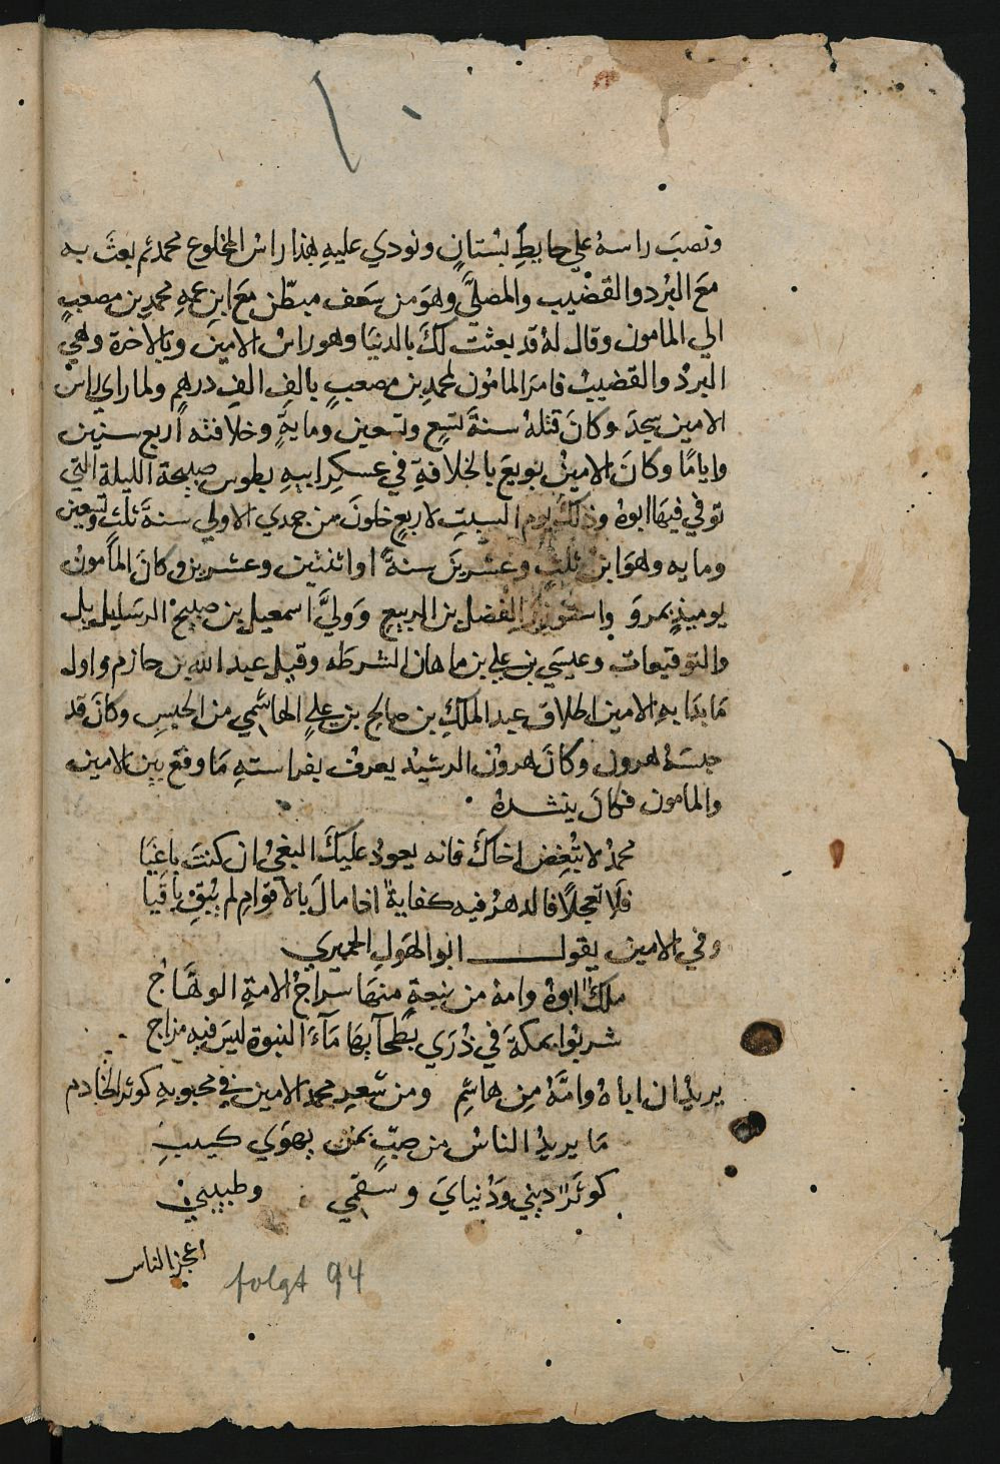 ونصبَ راسهُ علي حايطِ بستانٍ ونودي عليهِ هذا راس المخلوع محمد ثم بعثَ به
معَ البُرد والقضيب والمصليَّ وهوَ من سَعف مبطّن معَ ابنِ عمهِ محمدِ بن مصعبٍ
الي المامون وقال لهُ قد بعثت لكَ بالدنيَا وهو راسُ الامينَ وبالاخرة وهي
البردُ والقضيبُ فامرَ المامُون لمحمدِ بن مصعبٍ بالفِ الفِ درهمٍ ولما راي راسَ
الامين سجدَ وكانَ قتلهُ سنةَ تسعٍ وتسعين ومايةٍ وخلافته اربع سنين
واياماً وكانَ الامينُ بويعَ بالخلافةِ في عسكرِ ابيهِ بطوس صبيحة الليلة التي
توفي فيهَا ابوهُ وذلكَ يوم السبتِ لاربعٍ خلونَ من جمدي الاولي سنةَ ثلث وتسعين
ومايه وهوَ ابنُ ثلثٍ وعشرينَ سنةً او اثنتين وعشرين وكانَ المأمونُ
يوميذٍ بمروَ واستوزرَ الفضل بن الربيعِ ووليَّ اسمعيل بن صبيحْ الرسايل
والتوقيعات وعيسَي بن علي بن ماهان الشرطه وقيل عبد الله بن حازم واول
مَا بدَا بهِ الامين اطلاق عبد الملكِ بن صالح بن عليٍ الهاشمي من الحبسِ وكانَ قد
حبسَهُ هرون وكانَ هروُن الرشيد يعرفُ بفراستهِ مَا وقعَ بين الامين
والمامون فكانَ ينشدهُ
محمدُ لا تُبغِض اخاكَ فانه يعودُ عليكَ البغيُ ان كنتَ باغيَا
فلَا تعجلاً فالدهرُ فيه كفايةٌ اذا مالَ بالاقوامِ لم يُبقِ باقيَا
وفي الامين يقول ابوا الهَولِ الحميري
ملكٌ ابوهُ وامهُ من نبعةٍ منهَا سراجُ الامةِ الوهَّاجُ
شربُوا بمكةَ في ذُرَي بَطحآيهَا مَآءَ النبوة ليسَ فيهِ مزاج
يريدُ ان اباهُ وامَّهُ مِن هاشمٍ ومن شعرِ محمد الامين في محبوبهِ كوثر الخادم
مَا يريدُ الناسُ من صبٍّ بمن يهوَي كييبِ
كوثَرٌ ديني ودُنيايَ وسقمي وطبيبي
اعجز الناس
folgt 94